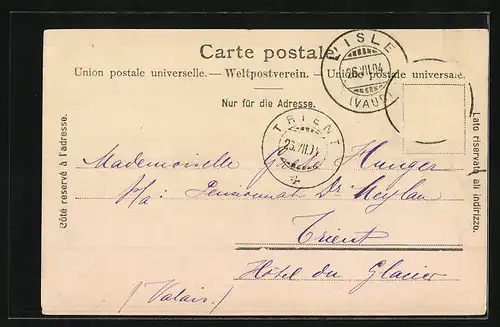 Carte postale
Union postale universelle. — Weltpostverein. — Unione postale universale.
Nur für die Adresse.
Côté réservé à l'adresse.
Lato riservato all indirizzo.
L'ISLE
26.VII.04
(VAUD)
TRIENT
26.VII.04
Mademoiselle Hunger
p/a: Pensionnat Dr Meylan
Trient
Hôtel du Glacier
(Valais.)